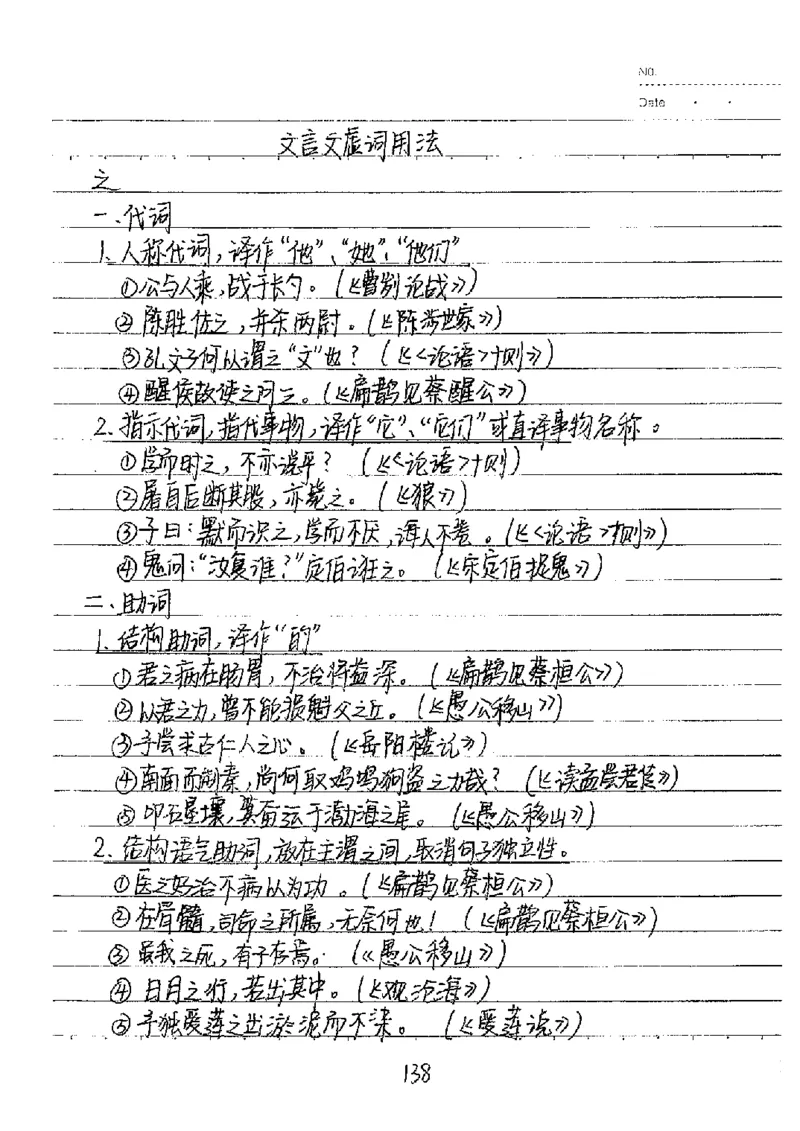 No.
Date
文言文虚词用法
之
一、代词
1、人称代词,译作“他”、“她”、“他们”
①公与人乘,战于长勺。(《曹刿论战》)
②陈胜佐之,并杀两尉。(《陈涉世家》)
③孔文子何以谓之“文”也?(《<论语>十则》)
④醒侯故使之问之。(《扁鹊见蔡醒公》)
2、指示代词,指代事物,译作“它”、“它们”或直译事物名称。
①学而时之,不亦说乎?(《<论语>十则)
②屠自后断其股,亦毙之。(《狼》)
③子曰:默而识之,学而不厌,诲人不卷。(《<论语>十则》)
④鬼问:“汝复谁?”定伯诳之。(《宋定伯捉鬼》)
二、助词
1、结构助词,译作“的”
①君之病在肠胃,不治将益深。(《扁鹊见蔡桓公》)
②以君之力,曾不能损魁父之丘。(《愚公移山》)
③予尝求古仁人之心。(《岳阳楼记》)
④南面而制秦,尚何取鸡鸣狗盗之力哉?(《读孟尝君传》)
⑤叩石垦壤,箕畚运于渤海之尾。(《愚公移山》)
2、结构语气助词,放在主谓之间,取消句子独立性。
①医之好治不病以为功。(《扁鹊见蔡桓公》)
②在骨髓,司命之所属,无奈何也!(《扁鹊见蔡桓公》)
③虽我之死,有子存焉。(《愚公移山》)
④日月之行,若出其中。(《观沧海》)
⑤予独爱莲之出淤泥而不染。(《爱莲说》)
138